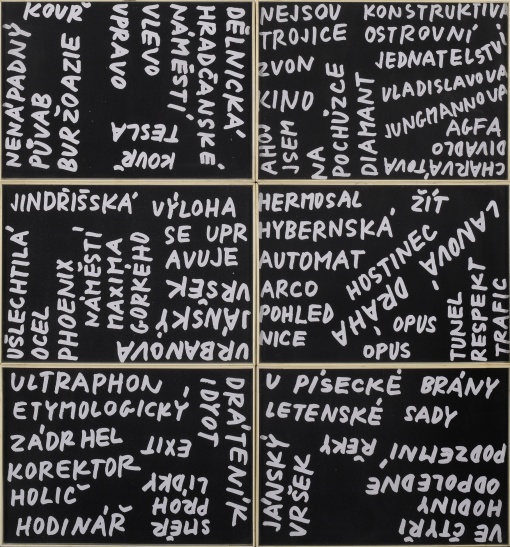 KOUŘ
NENÁPADNÝ
PŮVAB
BURŽOAZIE
VPRAVO
VLEVO
NÁMĚSTÍ
HRADČANSKÉ
DĚLNICKÁ
TESLA
KOUŘ
NEJSOU
TROJICE
ZVON
KINO
AHOJ
JSEM
NA
POCHŮZCE
DIAMANT
KONSTRUKTIVA
OSTROVNÍ
JEDNATELSTVÍ
VLADISLAVOVA
JUNGMANNOVA
AGFA
DIVADLO
CHARVÁTOVA
JINDŘIŠSKÁ
VÝLOHA
SE UPR
AVUJE
UŠLECHTILÁ
OCEL
PHOENIX
NÁMĚSTÍ
MAXIMA
GORKÉHO
VRŠEK
JÁNSKÝ
URBANOVA
HERMOSAL
HYBERNSKÁ
AUTOMAT
ARCO
POHLED
NICE
ŽÍT
HOSTINEC
LANOVÁ
DRÁHA
OPUS
OPUS
TUNEL
RESPEKT
TRAFIC
ULTRAPHON
ETYMOLOGICKÝ
ZÁDRHEL
KOREKTOR
HOLIČ
HODINÁŘ
DRÁTENÍK
IDYOT
EXIT
LÍDKY
PROH
SMĚR
U PÍSECKÉ BRÁNY
LETENSKÉ SADY
JÁNSKÝ
VRŠEK
PODZEMNÍ
ŘEKY
ODPOLEDNE
HODINY
VE ČTYŘI